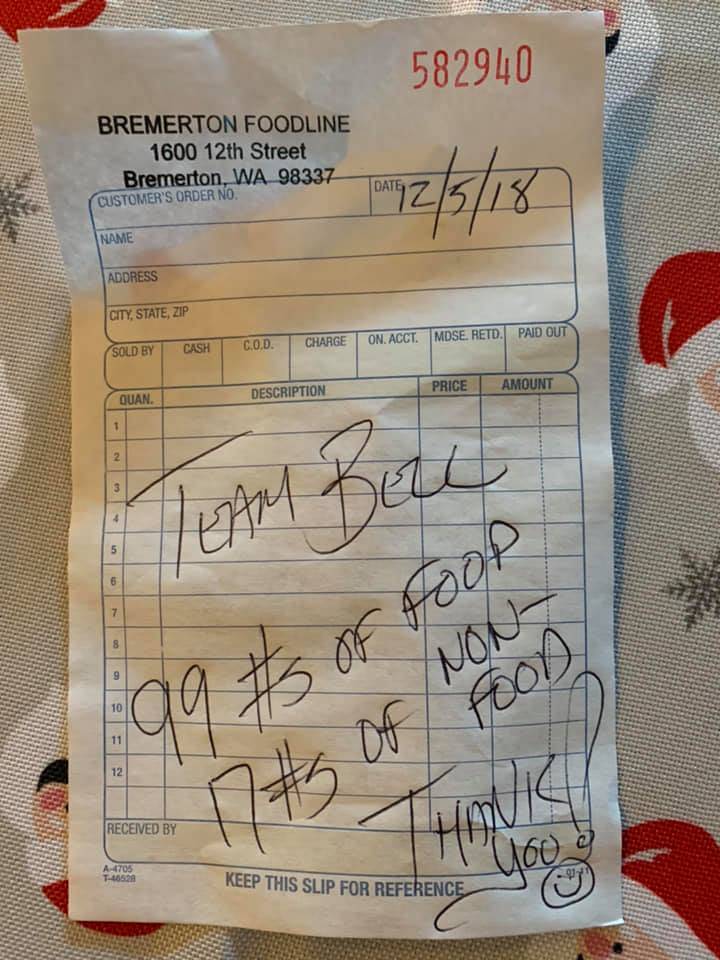 582940
BREMERTON FOODLINE
1600 12th Street
Bremerton, WA 98337
CUSTOMER'S ORDER NO. DATE 12/5/18
NAME
ADDRESS
CITY, STATE, ZIP
SOLD BY CASH C.O.D. CHARGE ON. ACCT. MDSE. RETD. PAID OUT
QUAN. DESCRIPTION PRICE AMOUNT
1
2
3
4
5
6
7
8
9
10
11
12
TEAM BELL
99 #s OF FOOD
17 #s OF NON-
FOOD
THANK
YOU!
RECEIVED BY
A-4705
T-46528
KEEP THIS SLIP FOR REFERENCE